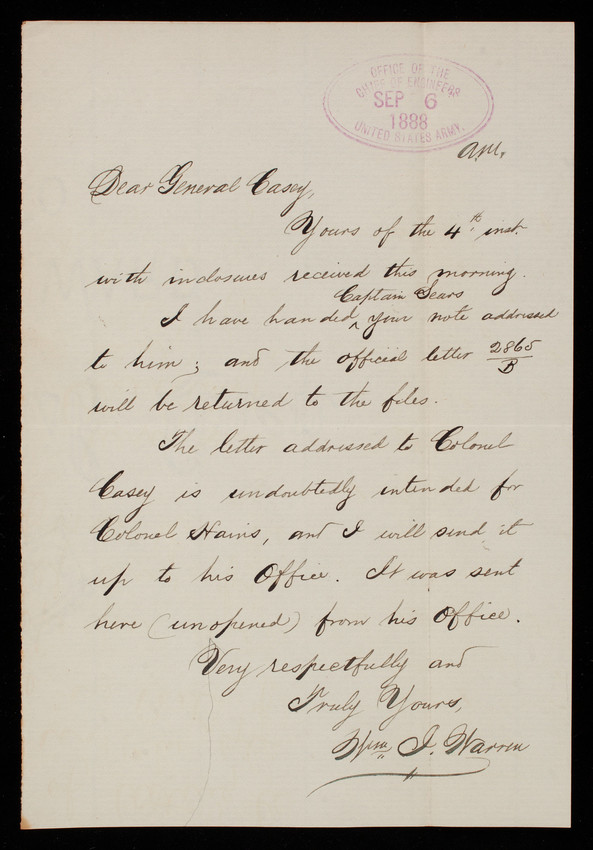 OFFICE OF THE
CHIEF OF ENGINEERS
SEP 6
1888
UNITED STATES ARMY.
A.M.
Dear General Casey,
Yours of the 4th inst.
with inclosures received this morning.
Captain Sears
I have handed ^ your note addressed
to him; and the official letter 2865/B
will be returned to the files.
The letter addressed to Colonel
Casey is undoubtedly intended for
Colonel Hains, and I will send it
up to his Office. It was sent
here (unopened) from his Office.
Very respectfully and
Truly Yours,
Wm. J. Warren